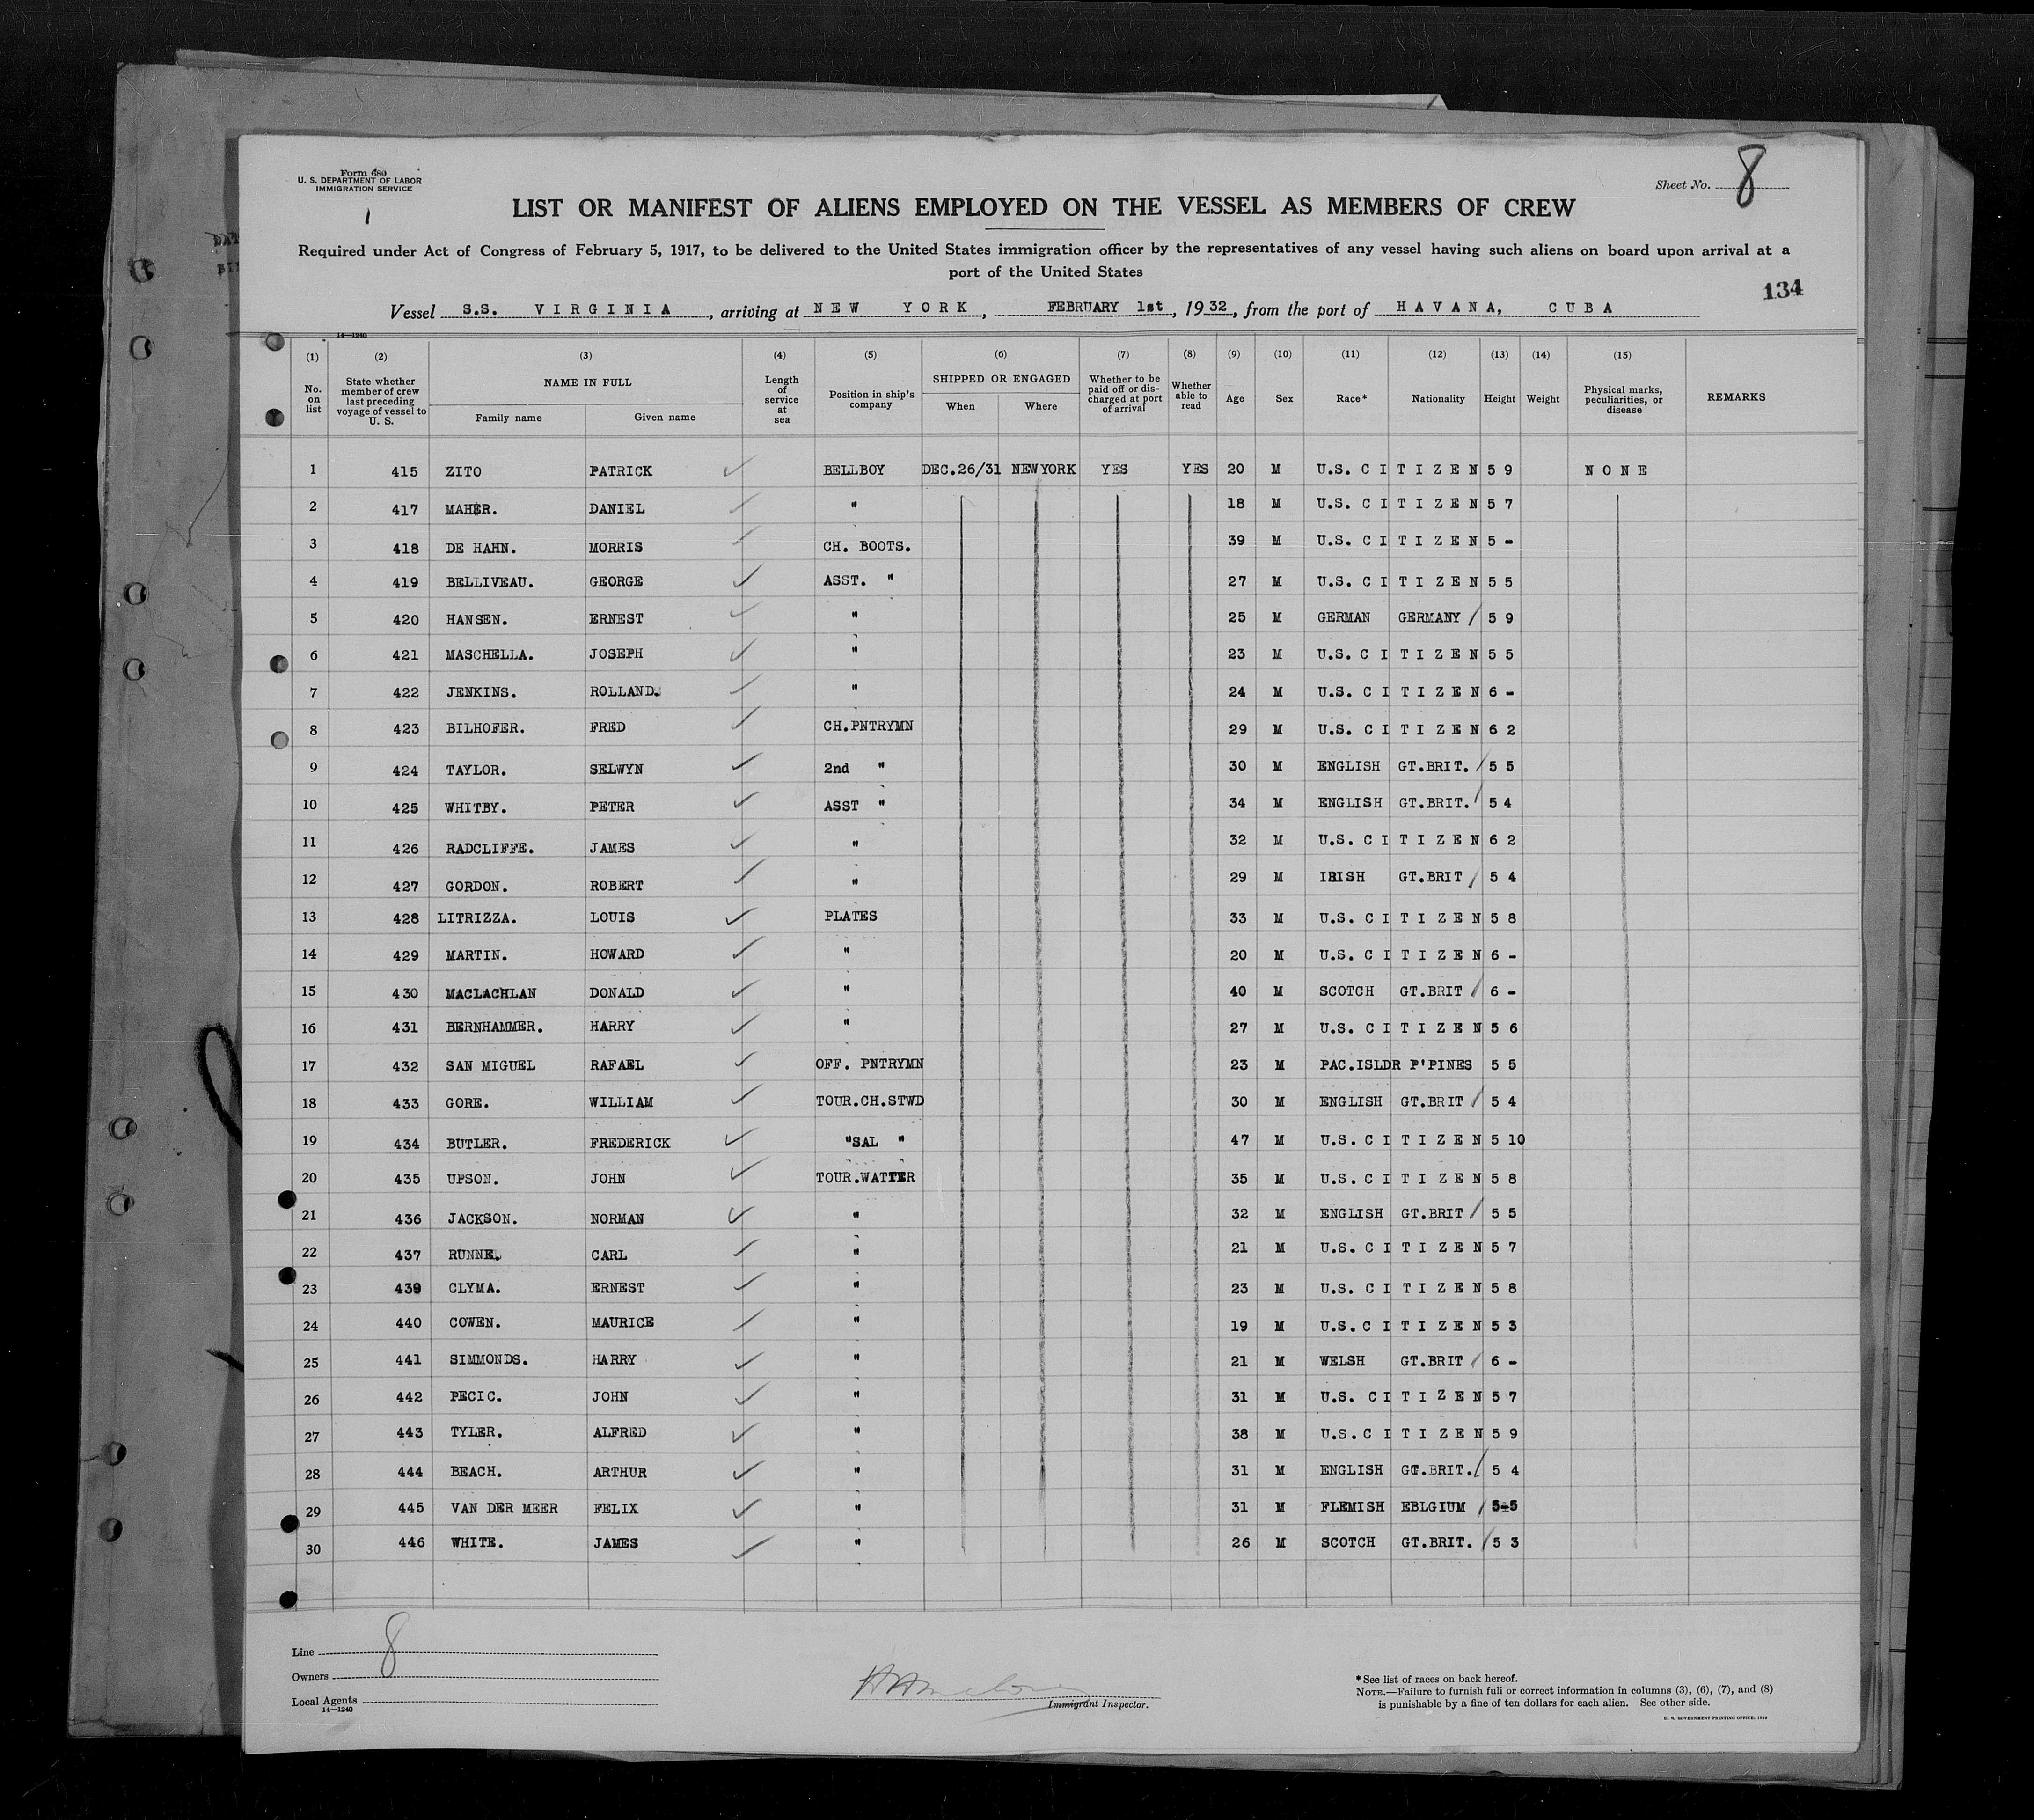 Form 680
U. S. DEPARTMENT OF LABOR
IMMIGRATION SERVICE
1
Sheet No. 8
LIST OR MANIFEST OF ALIENS EMPLOYED ON THE VESSEL AS MEMBERS OF CREW
Required under Act of Congress of February 5, 1917, to be delivered to the United States immigration officer by the representatives of any vessel having such aliens on board upon arrival at a
port of the United States
134
Vessel S.S. VIRGINIA, arriving at NEW YORK, FEBRUARY 1st, 1932, from the port of HAVANA, CUBA
14—1240
(1) (2) (3) (4) (5) (6) (7) (8) (9) (10) (11) (12) (13) (14) (15)
No. on list
State whether member of crew last preceding voyage of vessel to U. S.
NAME IN FULL
Family name
Given name
Length of service at sea
Position in ship's company
SHIPPED OR ENGAGED
When
Where
Whether to be paid off or discharged at port of arrival
Whether able to read
Age
Sex
Race*
Nationality
Height
Weight
Physical marks, peculiarities, or disease
REMARKS
1 415 ZITO PATRICK BELLBOY DEC.26/31 NEWYORK YES YES 20 M U.S. CITIZEN 5 9 NONE
2 417 MAHER. DANIEL " 18 M U.S. CITIZEN 5 7
3 418 DE HAHN. MORRIS CH. BOOTS. 39 M U.S. CITIZEN 5 -
4 419 BELLIVEAU. GEORGE ASST. " 27 M U.S. CITIZEN 5 5
5 420 HANSEN. ERNEST " 25 M GERMAN GERMANY / 5 9
6 421 MASCHELLA. JOSEPH " 23 M U.S. CITIZEN 5 5
7 422 JENKINS. ROLLAND. " 24 M U.S. CITIZEN 6 -
8 423 BILHOFER. FRED CH.PNTRYMN 29 M U.S. CITIZEN 6 2
9 424 TAYLOR. SELWYN 2nd " 30 M ENGLISH GT.BRIT. / 5 5
10 425 WHITBY. PETER ASST " 34 M ENGLISH GT.BRIT. / 5 4
11 426 RADCLIFFE. JAMES " 32 M U.S. CITIZEN 6 2
12 427 GORDON. ROBERT " 29 M IRISH GT.BRIT / 5 4
13 428 LITRIZZA. LOUIS PLATES 33 M U.S. CITIZEN 5 8
14 429 MARTIN. HOWARD " 20 M U.S. CITIZEN 6 -
15 430 MACLACHLAN DONALD " 40 M SCOTCH GT.BRIT / 6 -
16 431 BERNHAMMER. HARRY " 27 M U.S. CITIZEN 5 6
17 432 SAN MIGUEL RAFAEL OFF. PNTRYMN 23 M PAC.ISLDR P'PINES 5 5
18 433 GORE. WILLIAM TOUR.CH.STWD 30 M ENGLISH GT.BRIT / 5 4
19 434 BUTLER. FREDERICK "SAL " 47 M U.S. CITIZEN 5 10
20 435 UPSON. JOHN TOUR.WATTER 35 M U.S. CITIZEN 5 8
21 436 JACKSON. NORMAN " 32 M ENGLISH GT.BRIT / 5 5
22 437 RUNNE. CARL " 21 M U.S. CITIZEN 5 7
23 439 CLYMA. ERNEST " 23 M U.S. CITIZEN 5 8
24 440 COWEN. MAURICE " 19 M U.S. CITIZEN 5 3
25 441 SIMMONDS. HARRY " 21 M WELSH GT.BRIT / 6 -
26 442 PECIC. JOHN " 31 M U.S. CITIZEN 5 7
27 443 TYLER. ALFRED " 38 M U.S. CITIZEN 5 9
28 444 BEACH. ARTHUR " 31 M ENGLISH GT.BRIT. / 5 4
29 445 VAN DER MEER FELIX " 31 M FLEMISH EBLGIUM / 5-5
30 446 WHITE. JAMES " 26 M SCOTCH GT.BRIT. / 5 3
Line 8
Owners
Local Agents
14—1240
Immigrant Inspector.
*See list of races on back hereof.
NOTE.—Failure to furnish full or correct information in columns (3), (6), (7), and (8)
is punishable by a fine of ten dollars for each alien. See other side.